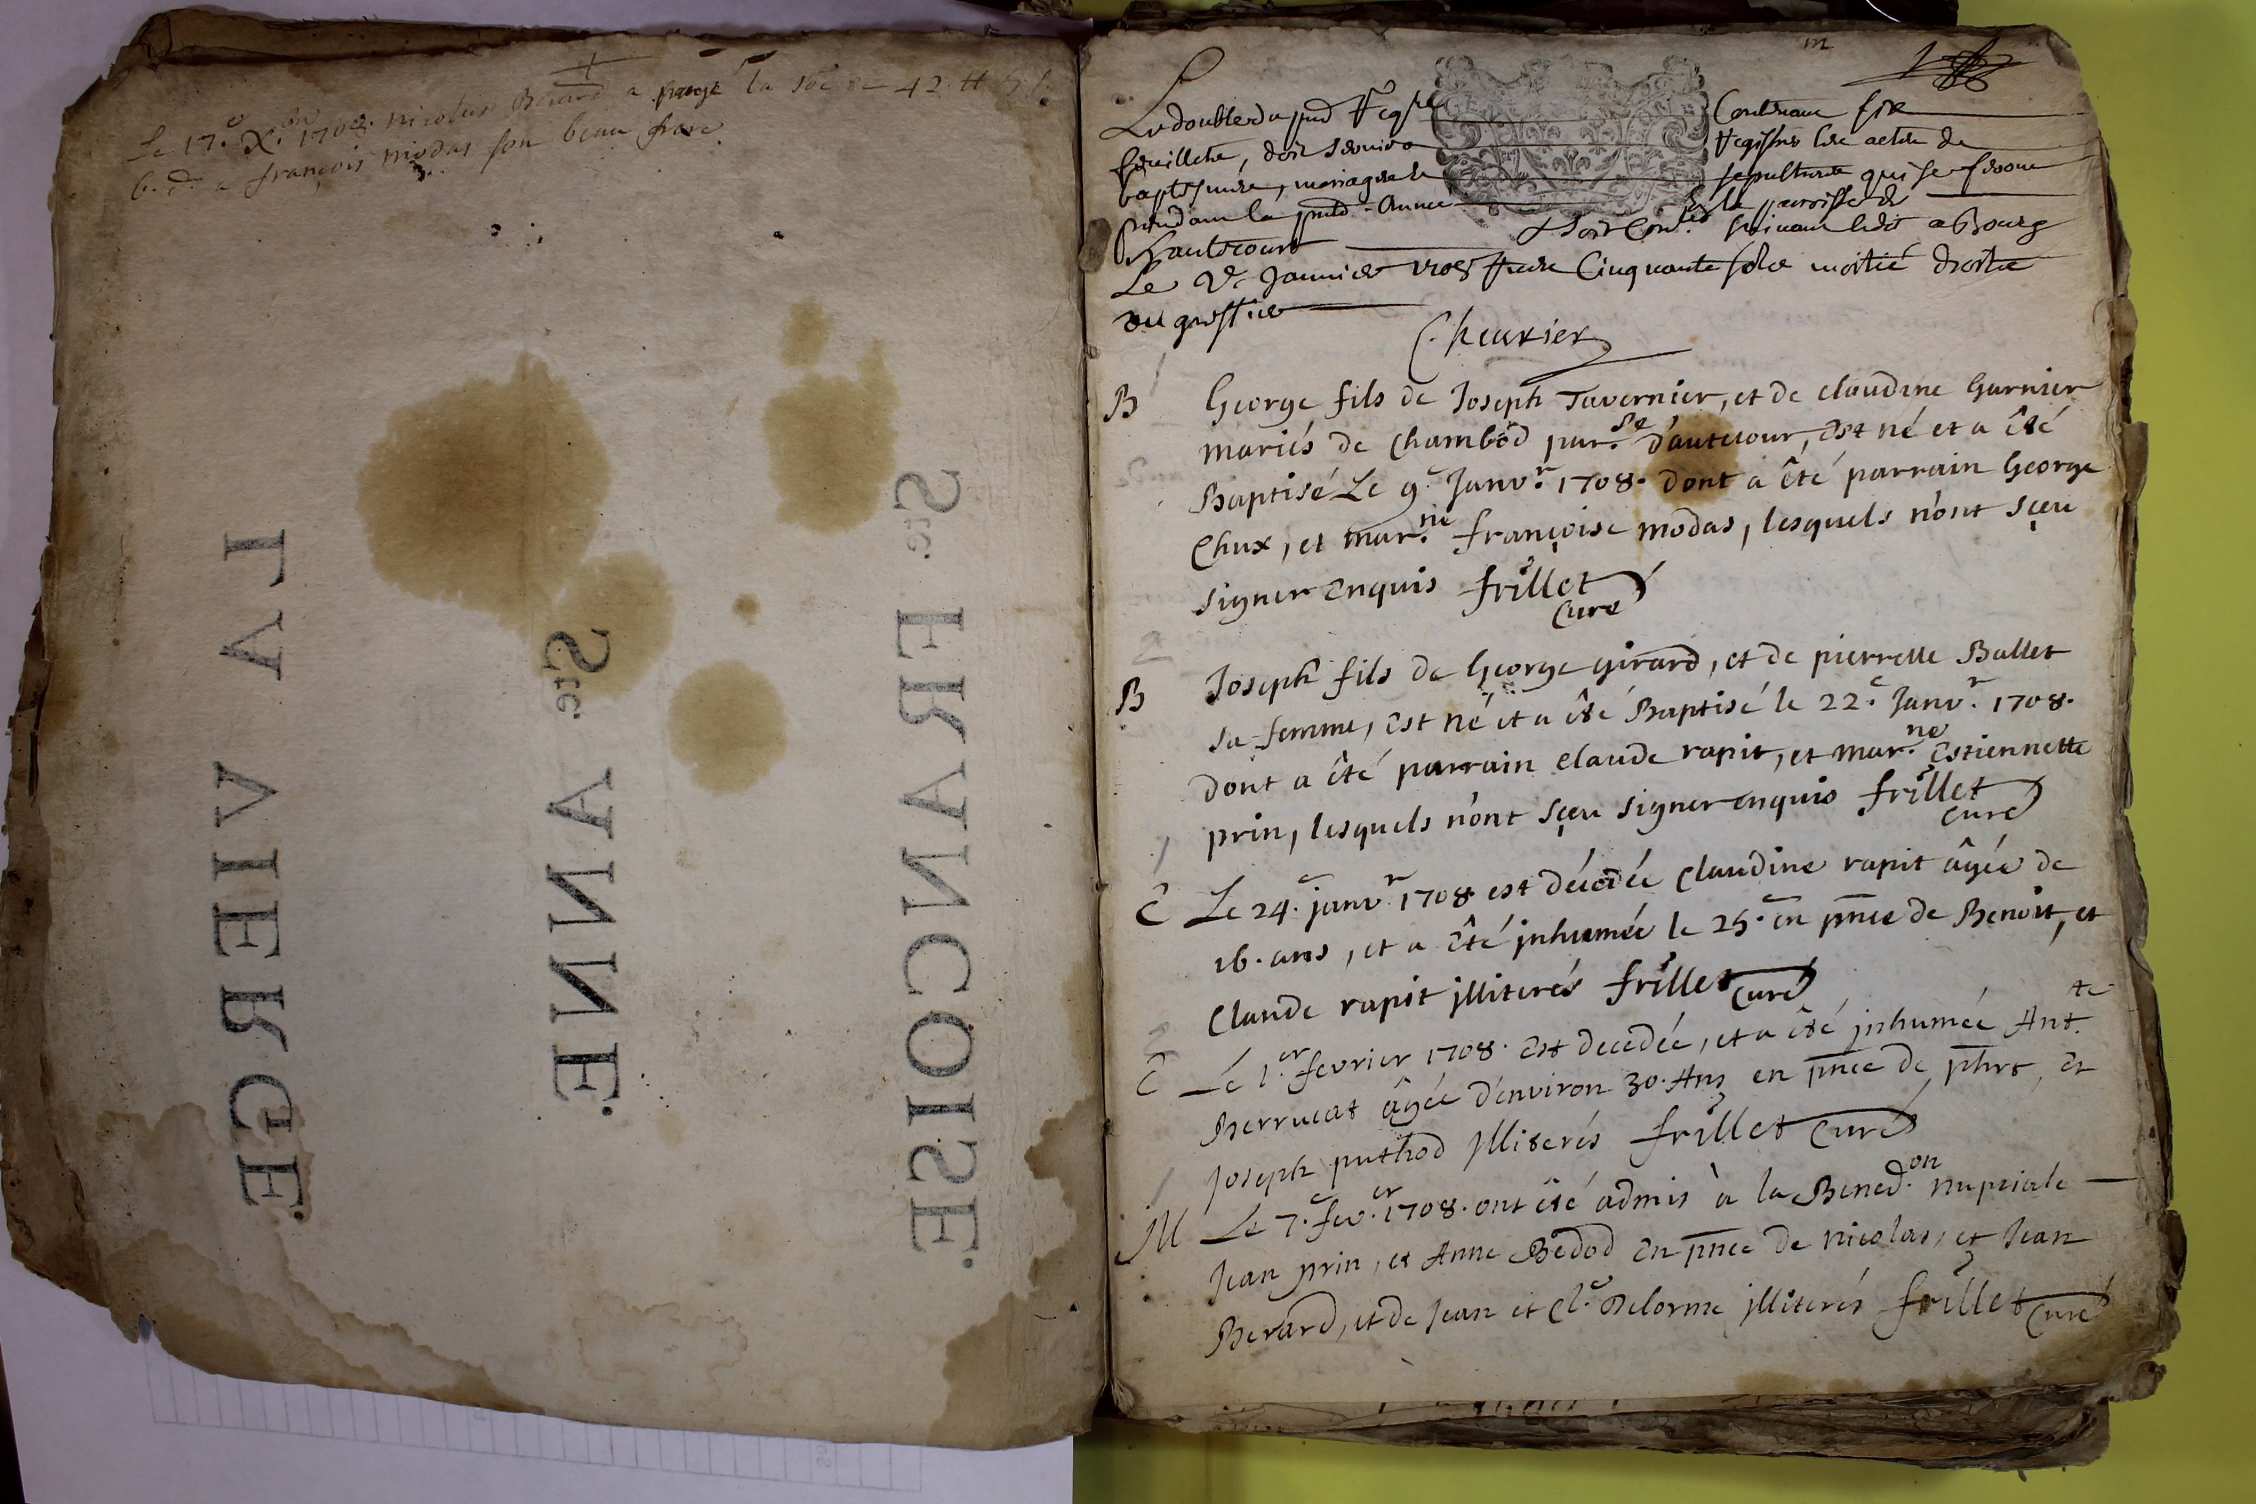 Le 17.e X.bre 1708. nicolas Berard a payé la so͞e de 42 tt
6. d. a françois modas son beau frere
Ste. FRANCOISE.
Ste. ANNE.
LA VIERGE.
Le double du pnt Reg.re Contenant six
feuillets, doit servir a Registrer les actes de
baptesmes, mariages et sepultures qui se feront
pendant la pnte Année en la paroisse de
Hautecourt
Le 2e Janvier 1708 Receu Cinquante sols moitié droits
du greffier
Cheurier
B George fils de Joseph Tavernier, et de claudine Garnier
mariés de Chambod par.se d'autecour, Est né et a êté
Baptisé Le 9.e Janv.r 1708. dont a êté parrain George
Chux, et mar.ne françoise modas, lesquels n'ont sçeu
signer Enquis frillet
Curé
B Joseph fils de George girard, et de pierrette Ballet
sa femme, Est né et a êté Baptisé le 22.e Janv.r 1708.
dont a êté parrain claude rapit, et mar.ne Estiennette
prin, lesquels n'ont sçeu signer enquis frillet
curé
E Le 24.e janv.r 1708 est décedée Claudine rapit âgée de
16. ans, et a êté jnhumée le 25.e en pn̄ce de Benoit, et
Claude rapit jlliterés frillet Curé
E Le 1.er fevrier 1708. Est decedée, et a êté jnhumée Ant.te
Berrucat âgée d'environ 30. Ans en pn̄ce de phrt, et
Joseph puthod Jlliterés frillet Curé
M Le 7.e fev.er 1708. ont êté admis à la Bened.on nupciale
Jean prin, et Anne Bedod En pn̄ce de nicolas, et Jean
Berard, et de Jean et Cl.e Delorme jlliterés frillet Curé